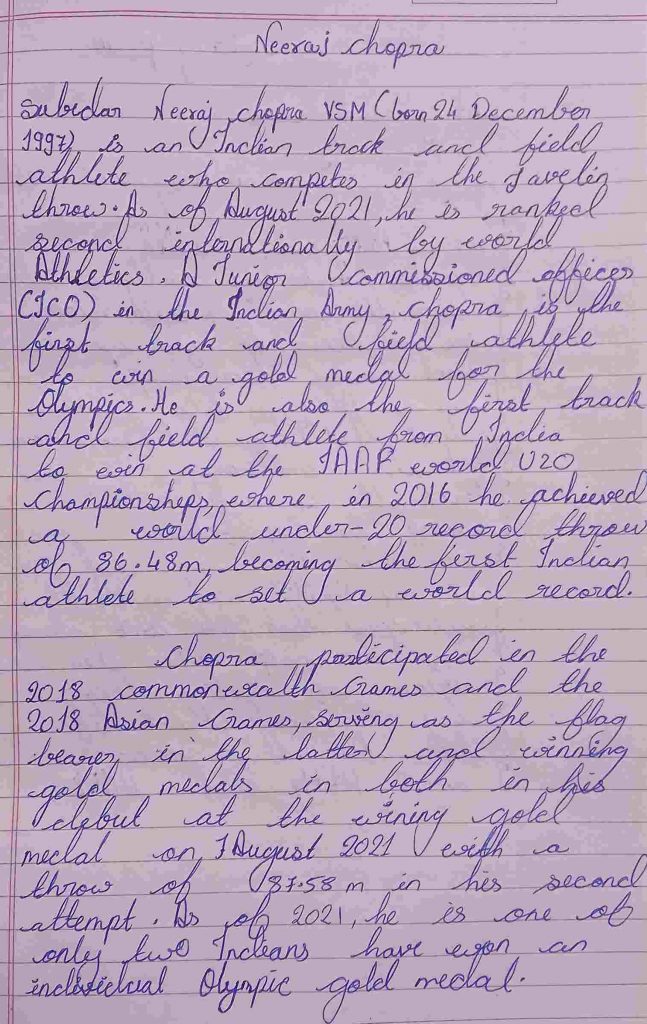 Neeraj chopra
Subedar Neeraj chopra VSM (born 24 December
1997) is an Indian track and field
athlete who competes in the Javelin
throw. As of August 2021, he is ranked
second internationally by world
Athletics. A Junior commissioned officer
(JCO) in the Indian Army, chopra is the
first track and field athlete
to win a gold medal for the
Olympics. He is also the first track
and field athlete from India
to win at the IAAF world U20
championships, where in 2016 he achieved
a world under-20 record throw
of 86.48m, becoming the first Indian
athlete to set a world record.
Chopra participated in the
2018 commonwealth Games and the
2018 Asian Games, serving as the flag
bearer in the latter and winning
gold medals in both in his
debut at the wining gold
medal on 7 August 2021 with a
throw of 87.58 m in his second
attempt. As of 2021, he is one of
only two Indians have won an
individual Olympic gold medal.